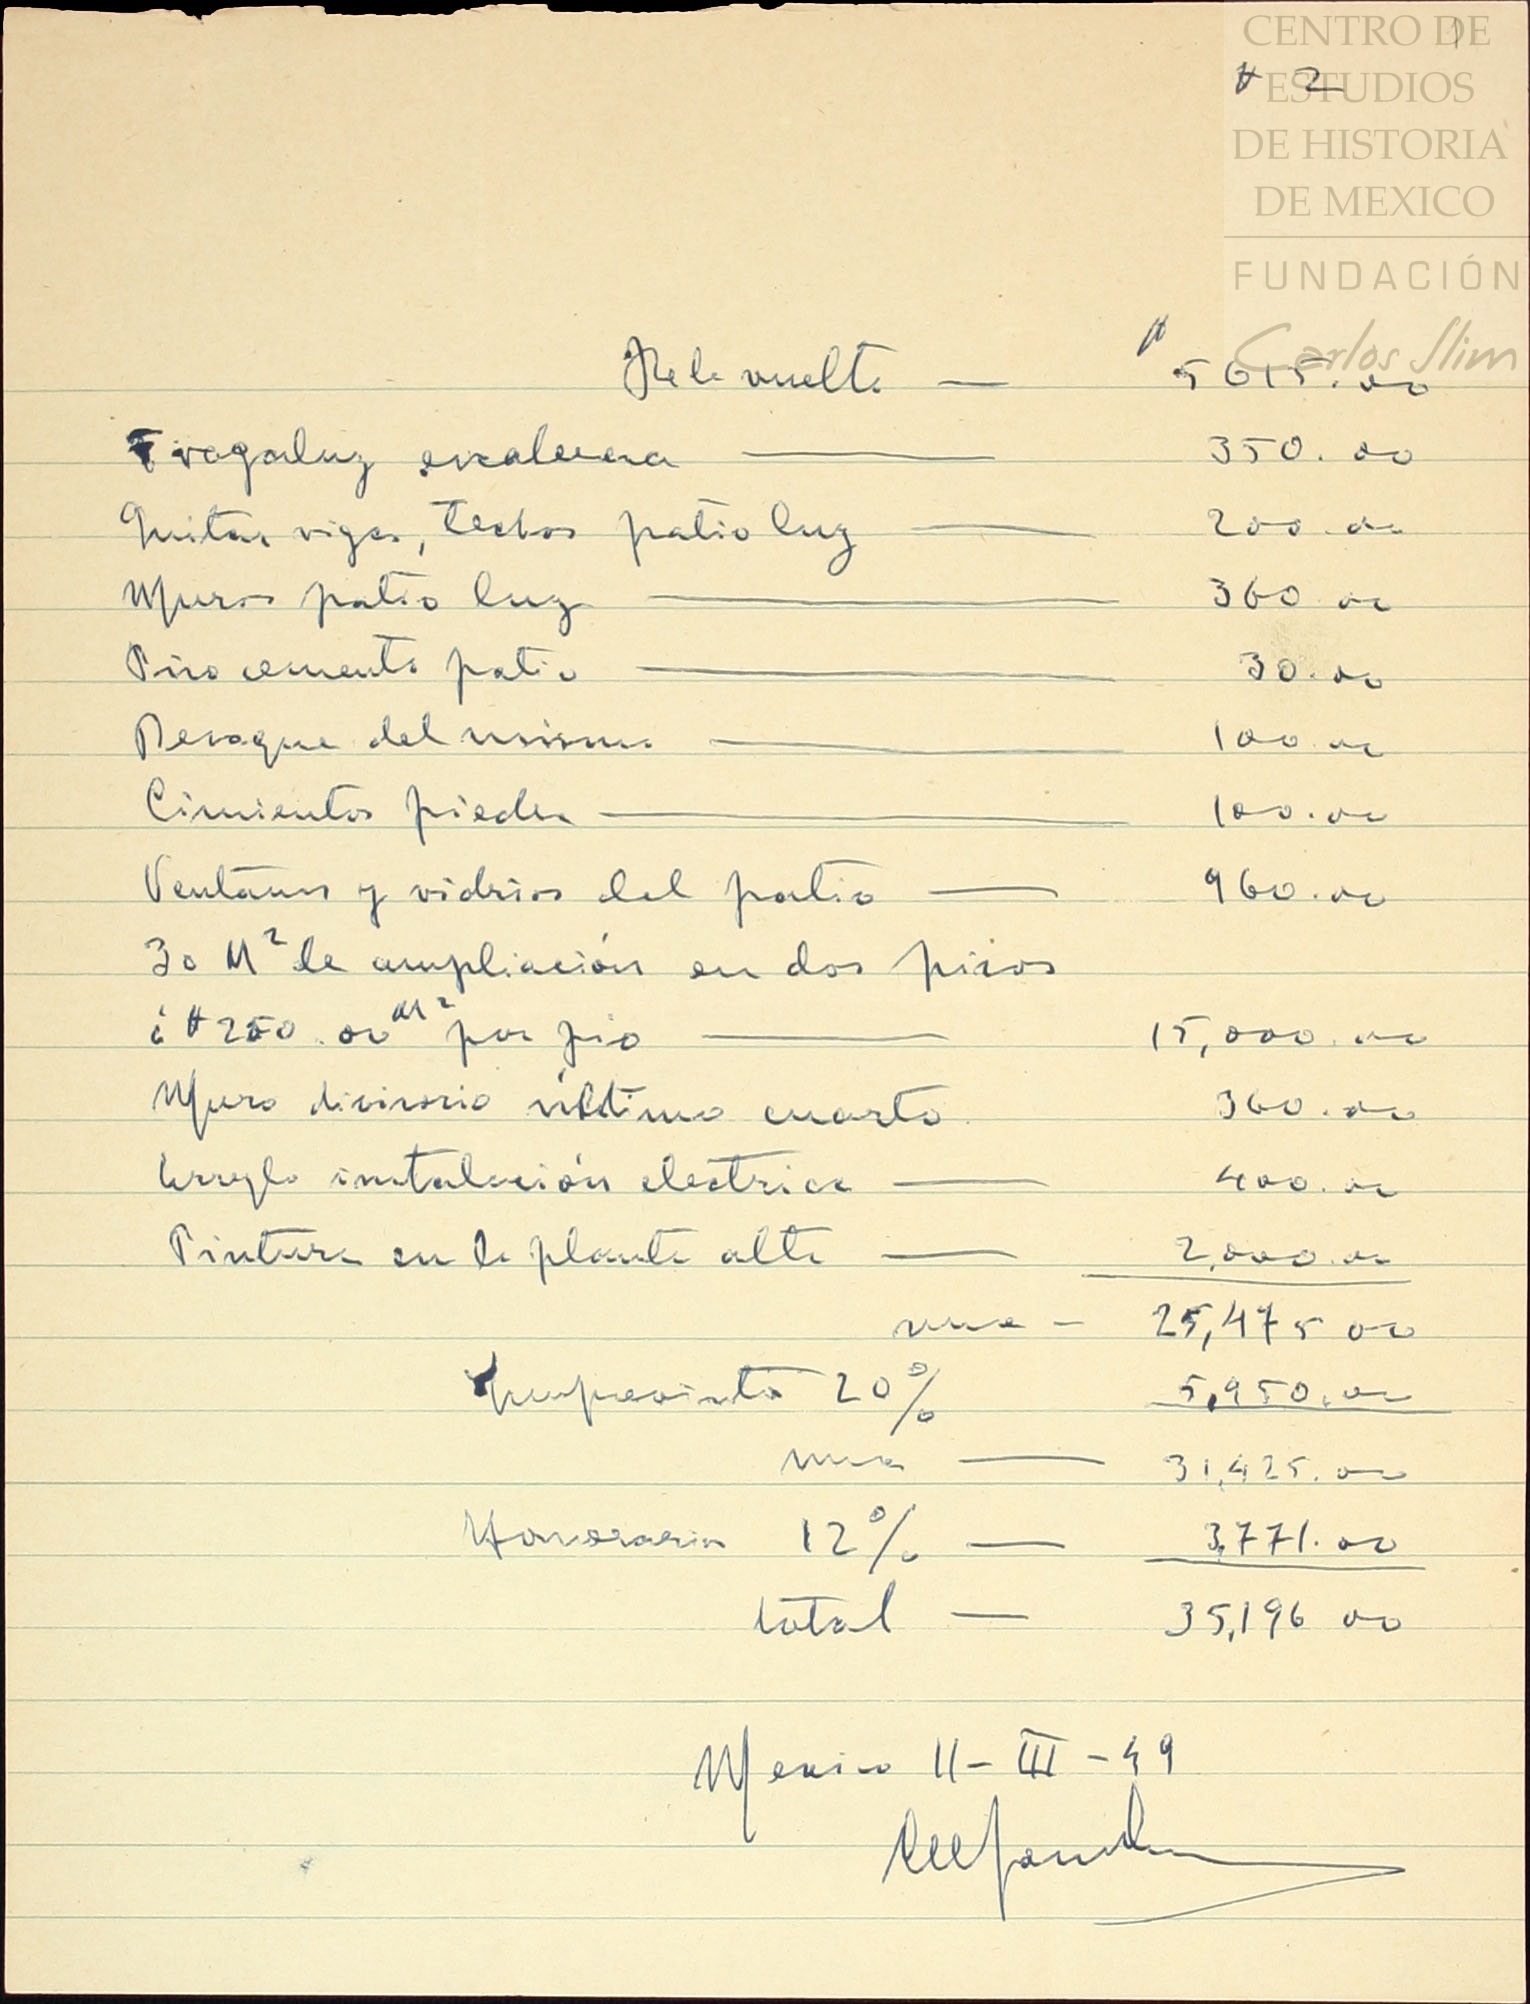 CENTRO DE
ESTUDIOS
DE HISTORIA
DE MEXICO
FUNDACIÓN
Carlos Slim
# 2
De la vuelta — $ 5615.00
Tragaluz escalera — 350.00
Quitar vigas, techos patio luz — 200.00
Muros patio luz — 360.00
Piso cemento patio — 30.00
Desague del mismo — 100.00
Cimientos piedra — 100.00
Ventanas y vidrios del patio — 960.00
30 M² de ampliación en dos pisos
á $ 250.00 M² por piso — 15,000.00
Muro divisorio último cuarto 360.00
Arreglo instalación electrica — 400.00
Pintura en la planta alta — 2,000.00
suma — 25,475 00
Imprevistos 20% 5,950.00
suma — 31,425.00
Honorarios 12% — 3,771.00
total — 35,196 00
Mexico 11-III-49